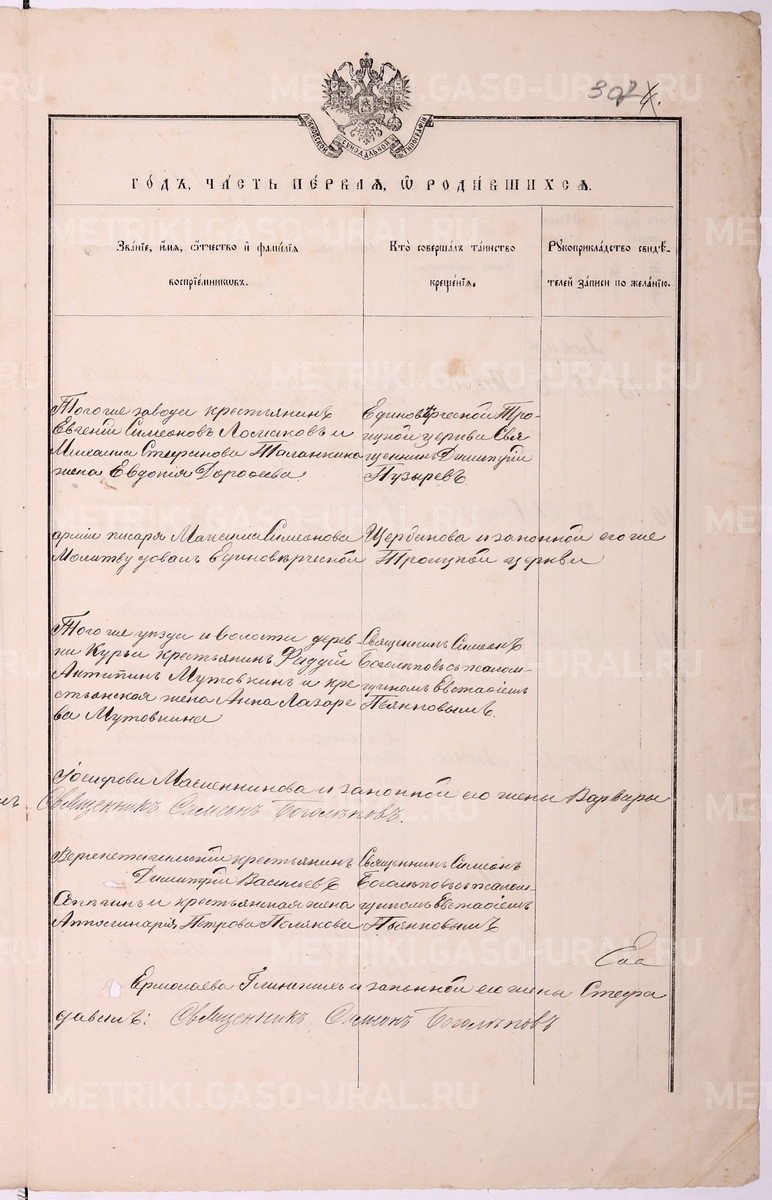 307
МОСКОВСКОЙ СѴНОДАЛЬНОЙ ТИПОГРАФІИ
ГО́ДЪ, ЧА́СТЬ ПЕ́РВАЯ, Ѡ РОДИ́ВШИХСЯ.
Зва́нїе, и́мя, ѻ́тчество и҆ фами́лїя
воспрїе́мникѡвъ.
Кто̀ соверша́лъ та́инство
креще́нїя.
Рꙋкоприкла́дство свидѣ́-
телей за́писи по жела́нїю.
Того же завода крестьянинъ
Евгеній Симеоновъ и
Михаила Стефанова Таланкина
жена Евдокія Дороѳеева
Единовѣрческой Тро-
ицкой церкви Свя
щенникъ Димитрій
Пузыревъ
арміи писаря Максима Симеонова Щербакова и законной его же
Молитву давалъ Единовѣрческой Троицкой церкви
Того же уѣзда и волости дерев
ни Курьи крестьянинъ Фаддей
Антипинъ Мутовкинъ и кре
стьянская жена Анна Лазаре
ва Мутовкина
Священникъ Симеонъ
Боголѣповъ съ псалом-
щикомъ Евстаѳіемъ
Пьянковымъ.
Іосифова Масленникова и законной его жены Варвары
Священникъ Симеонъ Боголѣповъ.
крестьянинъ
Димитрій Васильевъ
и крестьянская жена
Аполлинарія Петрова Полякова
Священникъ Симеонъ
Боголѣповъ съ псалом-
щикомъ Евстаѳіемъ
Пьянковымъ
Ермолаева и законной его жены Стефа
давалъ: Священникъ Симеонъ Боголѣповъ
METRIKI.GASO-URAL.RU